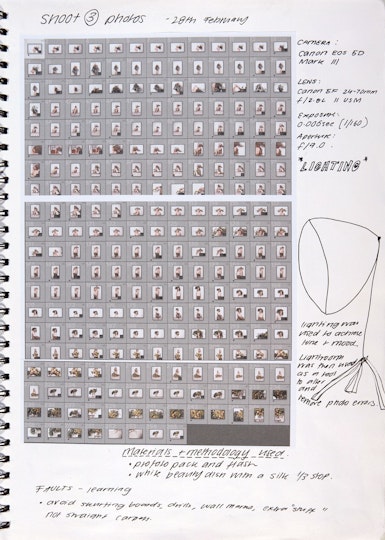 Shoot 3 photos - 28th February
CAMERA:
Canon EOS 5D
Mark III
LENS:
Canon EF 24-70mm
f/2.8L II USM
Exposure:
0.006sec (1/160)
Aperture:
f/9.0
"LIGHTING"
lighting was
used to achieve
tone + mood.
Lightroom
was then used
as a tool
to alter
and
photo errors.
Materials + methodology used
• profoto pack and flash
• white beauty dish with a silk 1/3 stop.
FAULTS - learning
• avoid skirting boards, drills, wall marks, extra "stuff"
not straight